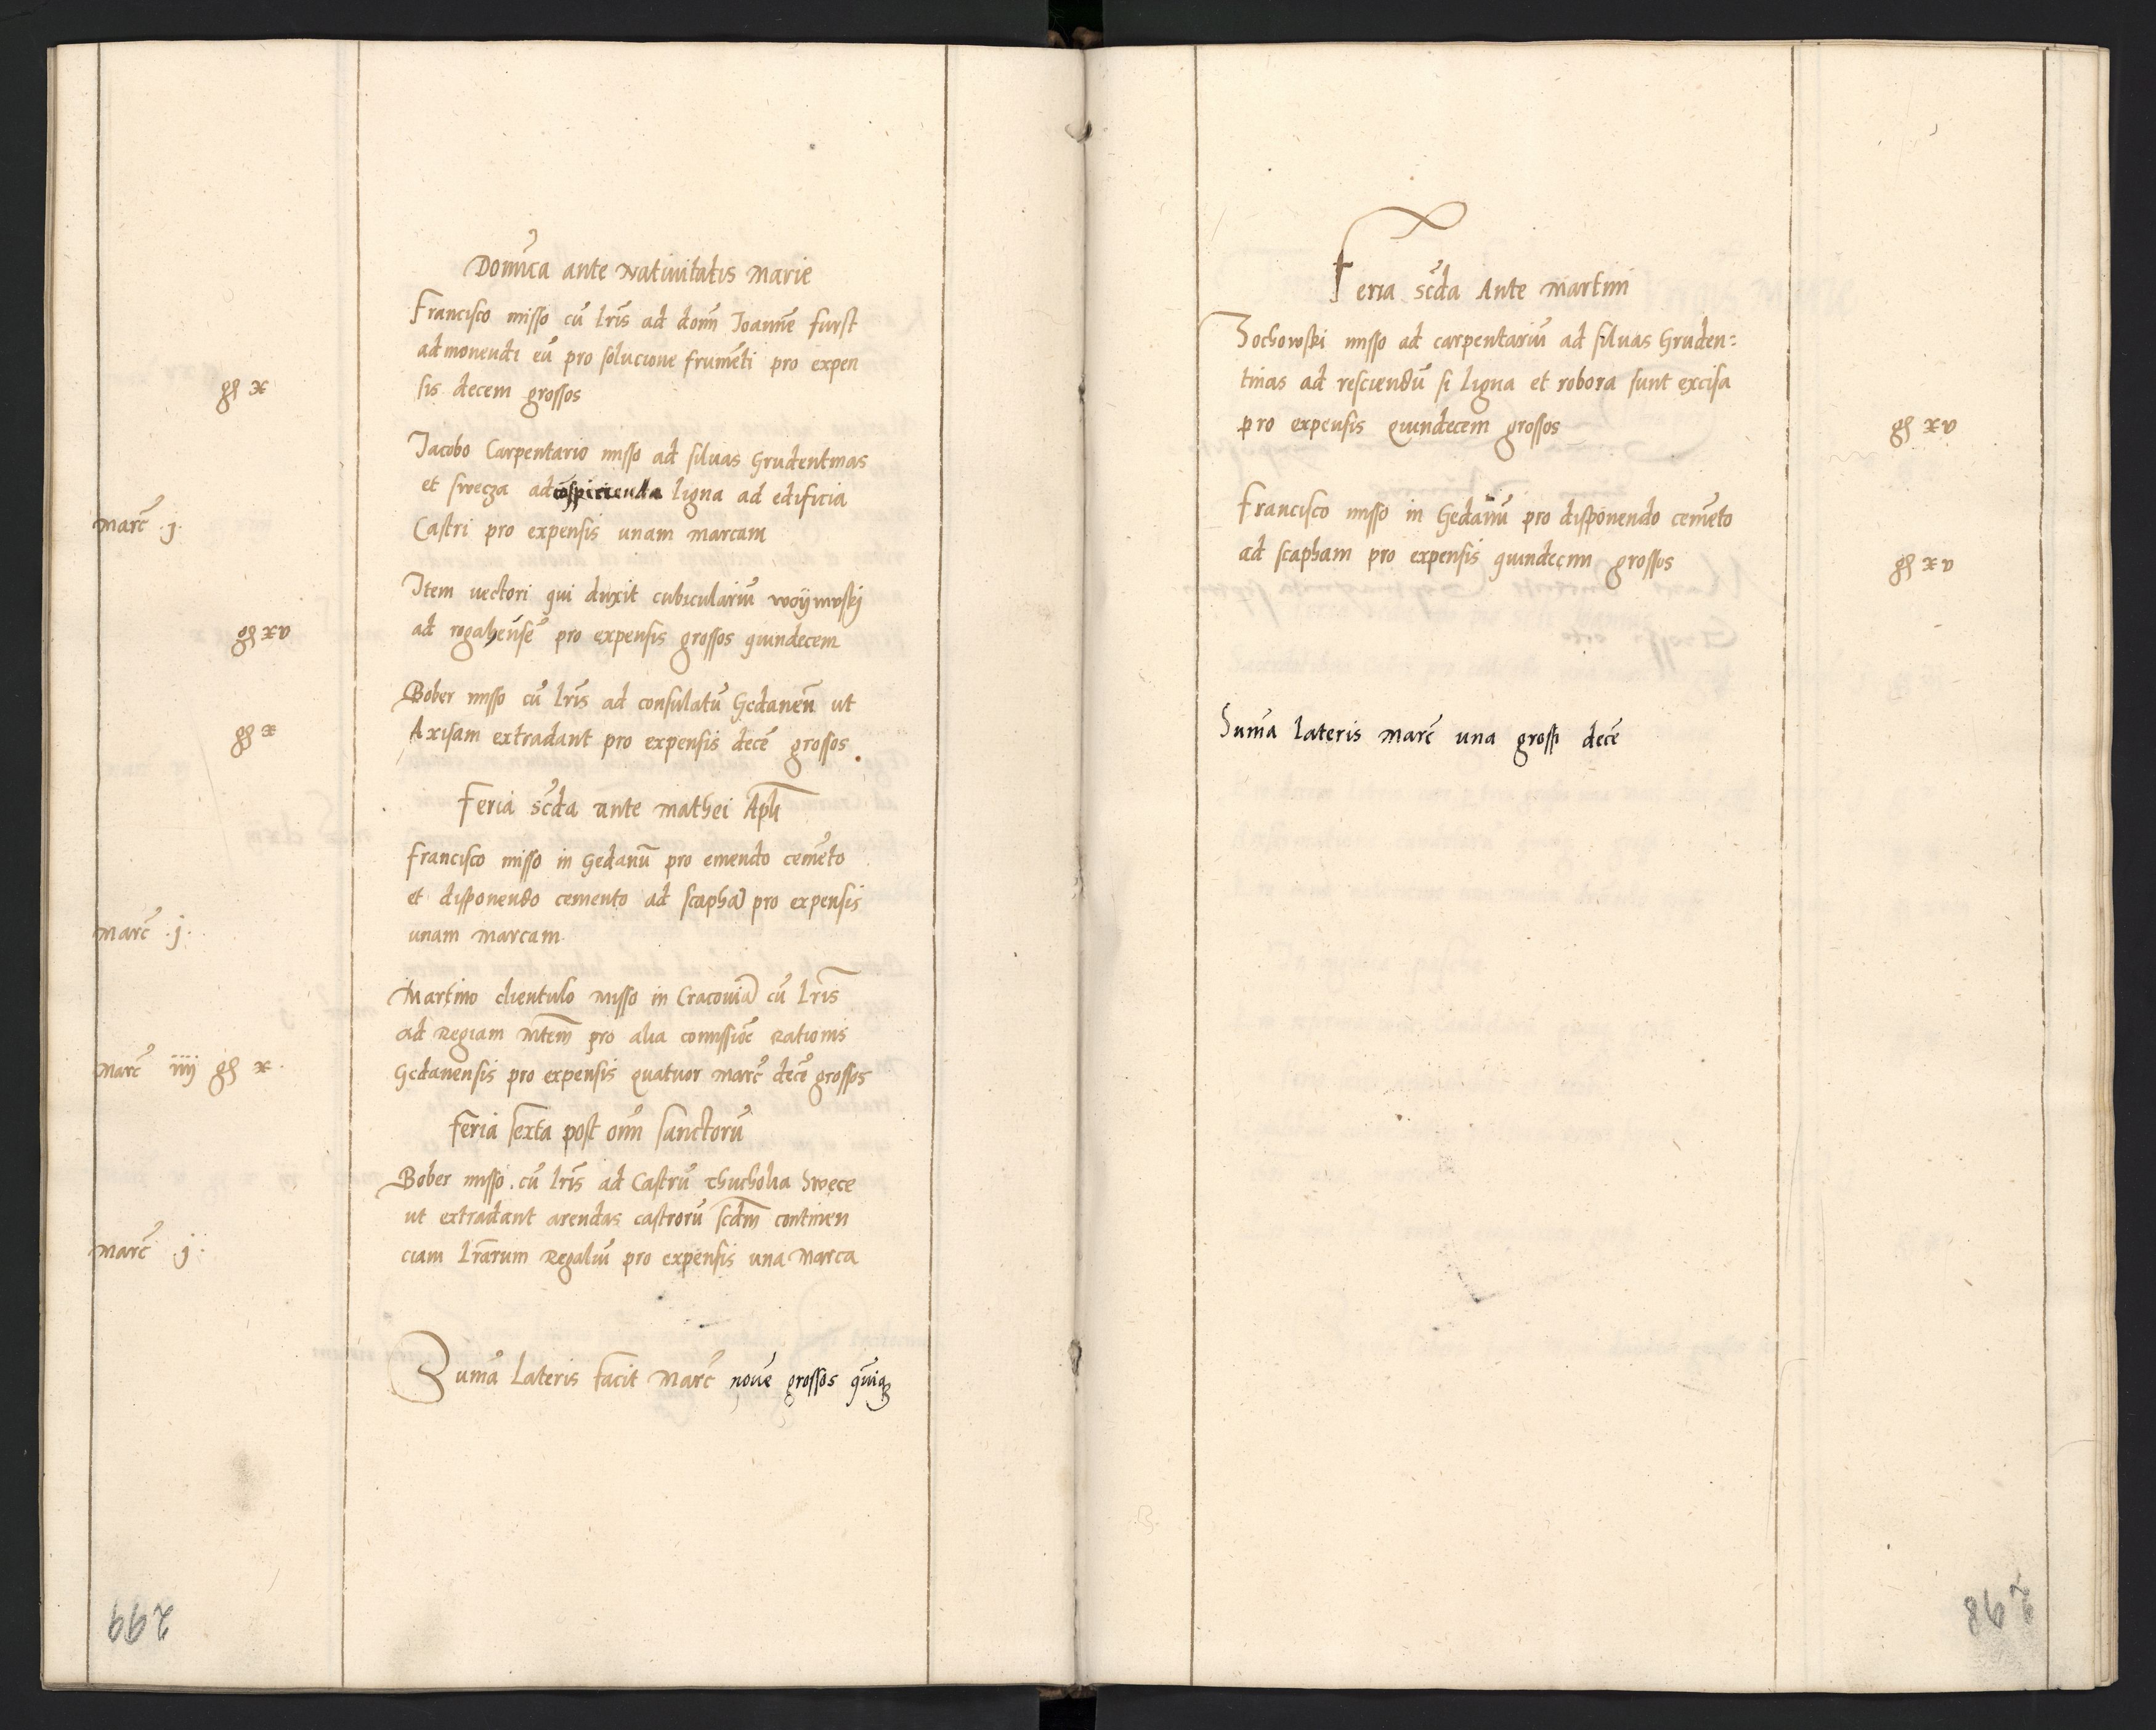 Domĩca ante Natiuitatis Marie
Francisco misso cũ lr̃is ad dom̃ Joannẽ furst
admonendi eũ pro solucione frumẽti pro expen
gℓ x sis decem grossos
Jacobo Carpentario misso ad siluas Grudentinas
et swecza ad cõspicienda ligna ad edificia
Marc̃ .j. Castri pro expensis unam marcam
Item uectori qui duxit cubiculariũ
gℓ xv ad pro expensis grossos quindecem
Bober misso cũ lr̃is ad consulatũ Gedaneñ ut
gℓ x Axisam extradant pro expensis decẽ grossos.
Feria sc̃da ante Mathei Apl̃i
Francisco misso in Gedanũ pro emendo cemẽto
et disponendo cemento ad scaphã pro expensis
Marc̃ .j. unam marcam
Martino clientulo misso in Cracouiã cũ lr̃is
ad Regiam Mtem̃ pro alia comissiõe Rationis
Marc̃ iiij gℓ x. Gedanensis pro expensis quatuor marc̃ decẽ grossos
Feria sexta post om̃ sanctorũ
Bober misso cũ lr̃is ad Castrũ Thucholia Swece
ut extradant arendas castrorũ scdm̃ continen
Marc̃ .j. ciam lr̃arum Regaliũ pro expensis una Marca
Suma Lateris facit Marc̃ nouẽ grossos quĩq3
299
Feria sc̃da Ante Martini
Zochowski misso ad carpentariũ ad siluas Gruden=
tinas ad resciendũ si ligna et robora sunt excisa
pro expensis quindecem grossos gℓ xv
Francisco misso in Gedanũ pro disponendo cemẽto
ad scapham pro expensis quindecim grossos gℓ xv
Sum̃a Lateris Marc̃ una grossi decẽ
298